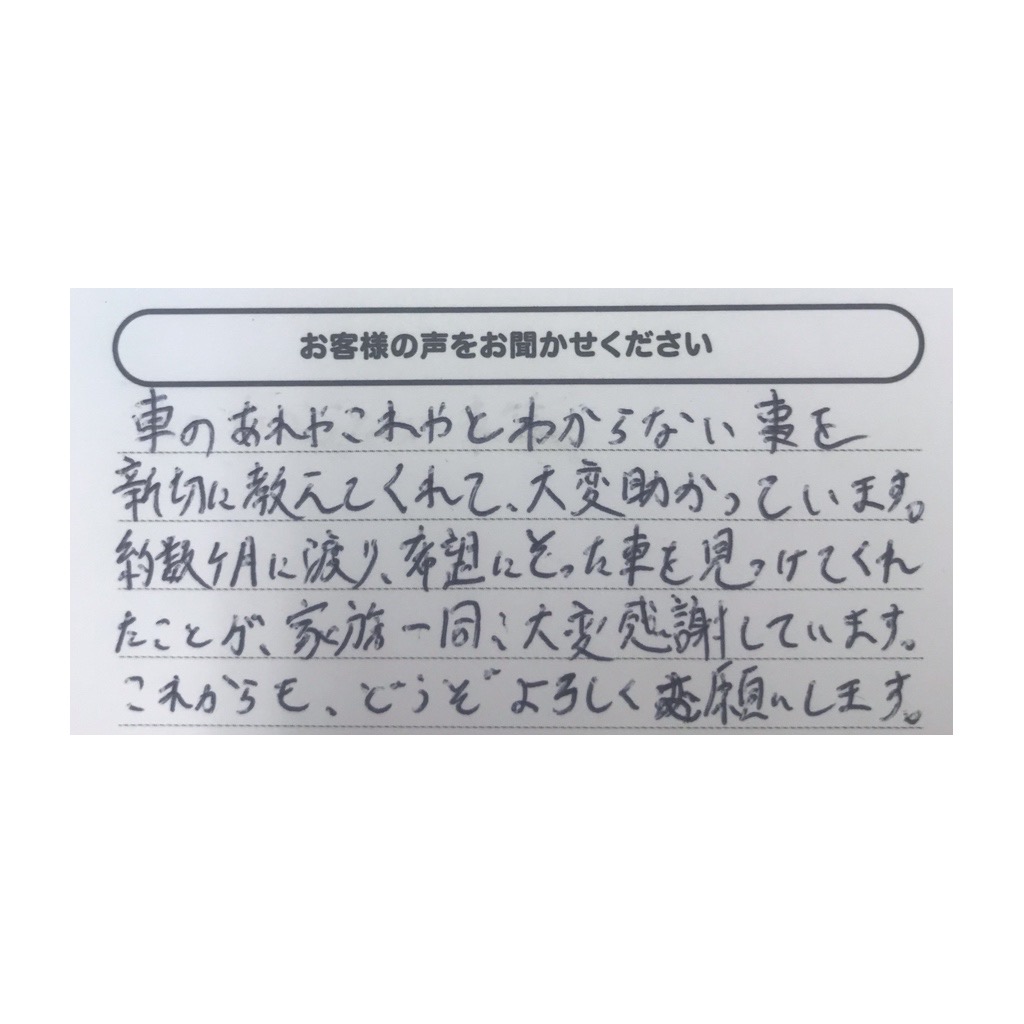 お客様の声をお聞かせください
車のあれやこれやとわからない事を
新切に教えてくれて、大変助かっています。
約数ケ月に渡り、希望にそった車を見つけてくれ
たことが、家族一同、大変感謝しています。
これからも、どうぞよろしくお願いします。